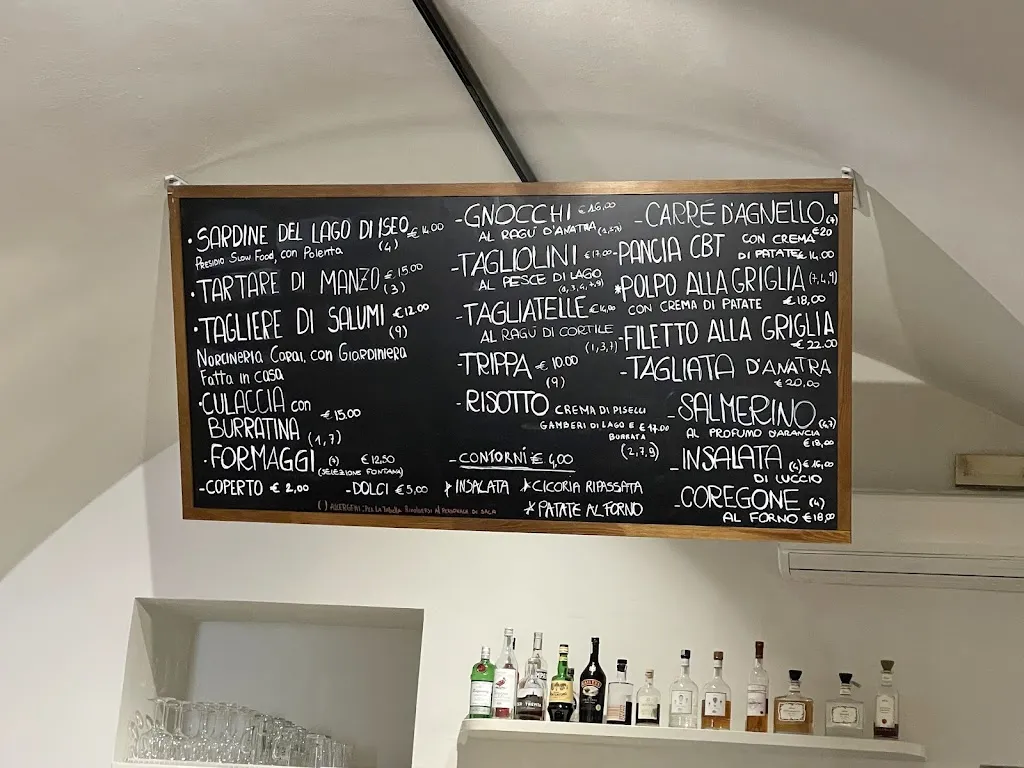 • SARDINE DEL LAGO DI ISEO € 14,00
Presidio Slow Food, con Polenta (4)
• TARTARE DI MANZO € 15,00
(3)
• TAGLIERE DI SALUMI € 12,00
(9)
Norcineria Coral, con Giardiniera
Fatta in casa
• CULACCIA con
BURRATINA € 15,00
(1,7)
• FORMAGGI (7) € 12,50
(SELEZIONE FONTANA)
- COPERTO € 2,00
- DOLCI € 5,00
- GNOCCHI € 16,00
AL RAGÙ D'ANATRA
- TAGLIOLINI € 17,00
AL PESCE DI LAGO
- TAGLIATELLE € 14,00
AL RAGÙ DI CORTILE
(1,3,7)
- TRIPPA € 10.00
(9)
- RISOTTO CREMA DI PISELLI
GAMBERI DI LAGO E € 17.00
BURRATA
(2,7,9)
- CONTORNI € 4,00
* INSALATA * CICORIA RIPASSATA
* PATATE AL FORNO
- CARRÉ D'AGNELLO (7)
€ 20
- PANCIA CBT CON CREMA
DI PATATE € 14,00
* POLPO ALLA GRIGLIA (7,4,9)
CON CREMA DI PATATE € 18,00
- FILETTO ALLA GRIGLIA
€ 22.00
- TAGLIATA D'ANATRA
€ 20,00
- SALMERINO (4,7)
AL PROFUMO D'ARANCIA
€ 18,00
- INSALATA (4) € 16,00
DI LUCCIO
- COREGONE (4)
AL FORNO € 18,00
( ) ALLERGENI: Per la Tabella Rivolgersi al personale di sala
BAILEYS